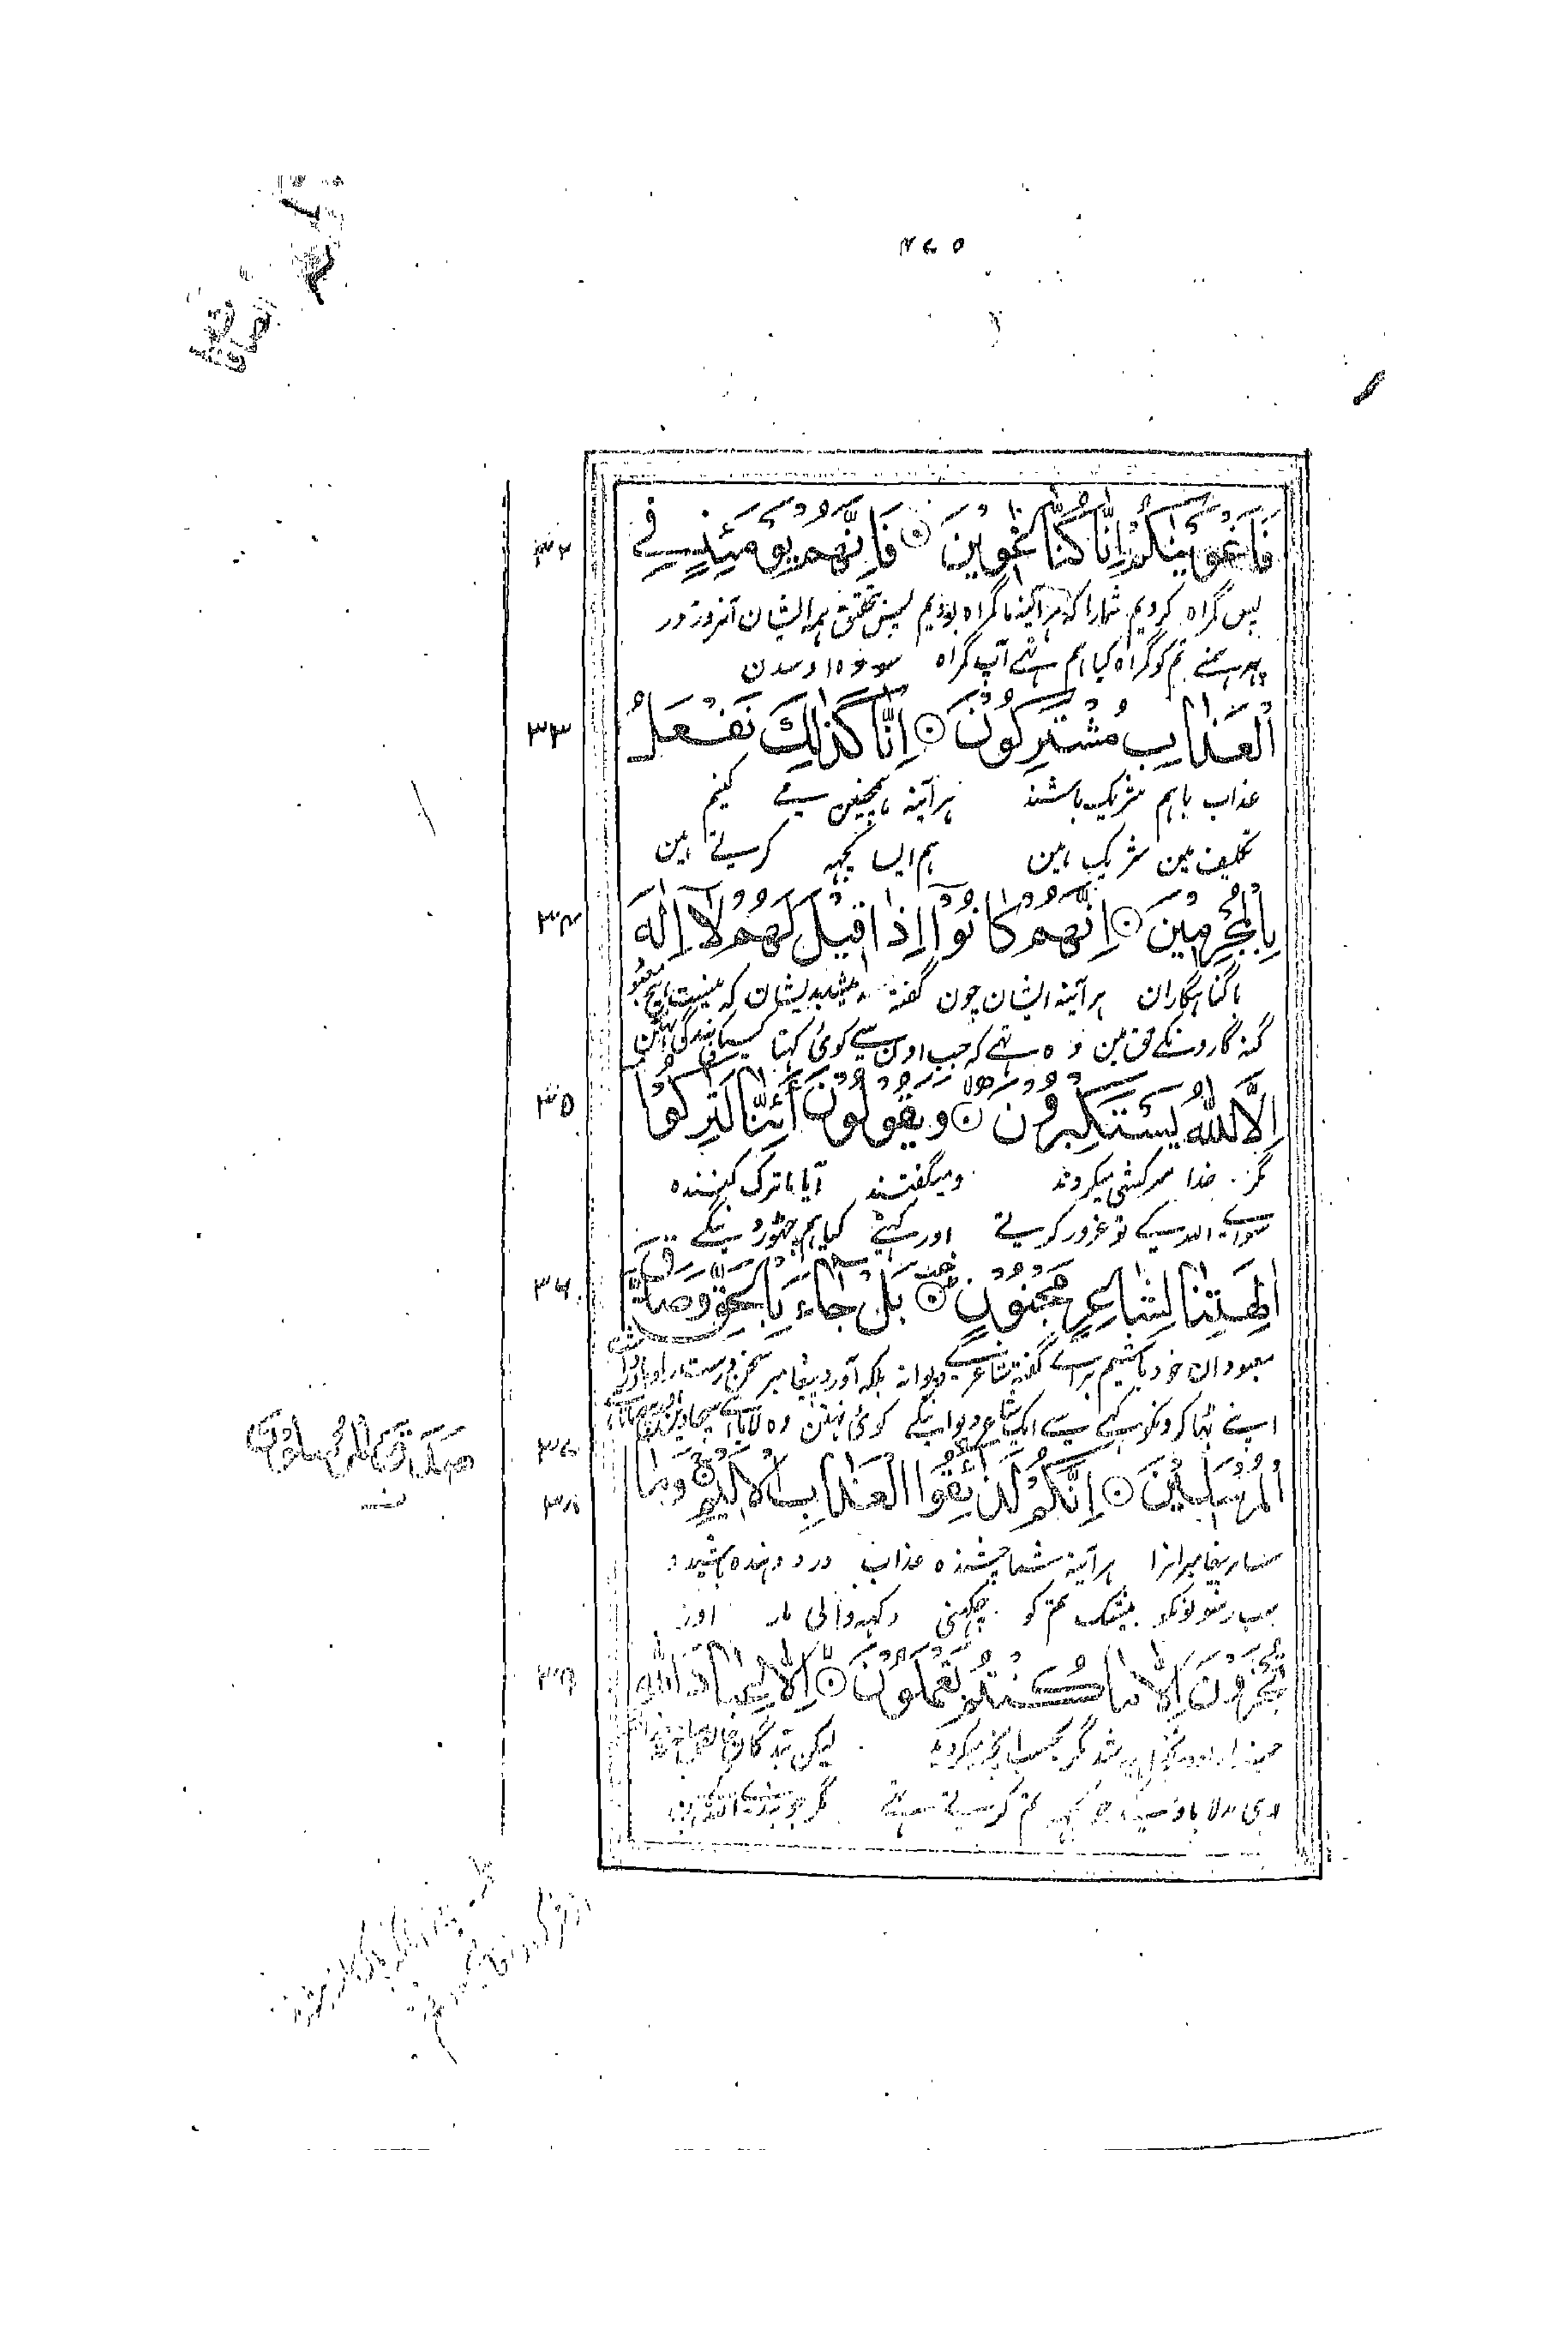 ۴۷۵
فَاَغْوَيْنٰكُمْ اِنَّا كُنَّا غٰوِيْنَ ۝ فَاِنَّهُمْ يَوْمَئِذٍ فِي
۳۲
پس گمراه کردیم شمارا که هرآئینه ما گمراه بودیم پس تحقیق همه ایشان آنروز در
پهر ہمنے تم کو گمراہ کیا ہم تہے آپ گمراہ سو وہ اوسدن
الْعَذَابِ مُشْتَرِكُوْنَ ۝ اِنَّا كَذٰلِكَ نَفْعَلُ
۳۳
عذاب باہم شریک باشند ہرآئینه ہمچنین مے کنیم
تکلیف مین شریک ہین ہم ایسا کچہہ کرتے ہین
بِالْمُجْرِمِيْنَ ۝ اِنَّهُمْ كَانُوْٓا اِذَا قِيْلَ لَهُمْ لَآ اِلٰهَ
۳۴
با گناہگاران ہرآئینه ایشان چون گفته میشد بدیشان که نیست ہیچ معبود
گنہگارونکے حق مین وہ تہے کہ جب اون سے کوئی کہتا کسیکی بندگی نہین
اِلَّا اللّٰهُ يَسْتَكْبِرُوْنَ ۝ وَيَقُوْلُوْنَ اَئِنَّا لَتَارِكُوْٓا
۳۵
مگر خدا سرکشی میکردند و میگفتند آیا ما ترک کننده
سواے اللہ کے تو غرور کرتے اور کہتے کیا ہم چہوڑ دینگے
اٰلِهَتِنَا لِشَاعِرٍ مَّجْنُوْنٍ ۝ بَلْ جَآءَ بِالْحَقِّ وَصَدَّقَ
۳۶
معبودان خود باشیم براے گفته شاعرے دیوانه بلکه آورد پیغامبر سخن درست را و باور داشت
اپنے ٹہاکرونکو کہے سے ایک شاعر دیوانیکے کوئی نہین وہ لایا ہے سچا دین
الْمُرْسَلِيْنَ ۝ اِنَّكُمْ لَذَآئِقُوا الْعَذَابِ الْاَلِيْمِ ۝ وَمَا
۳۷
۳۸
پیغامبرانرا ہرآئینه شما چشنده عذاب درد دهنده باشید و
سب رسولونکو بیشک تم کو چکہنی دکہہ والی مار اور
تُجْزَوْنَ اِلَّا مَا كُنْتُمْ تَعْمَلُوْنَ ۝ اِلَّا عِبَادَ اللّٰهِ
۳۹
جزا داده نخواہید شد مگر بحسب آنچه میکردید لیکن بندگان خالص
وہی بدلا پاؤگے جو کچہہ تم کرتے تہے مگر جو بندے اللہ کے ہین
صدق المرسلون